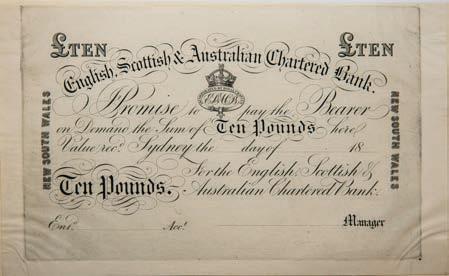 £TEN £TEN
English, Scottish & Australian Chartered Bank.
Promise to pay the Bearer
on Demand the Sum of Ten Pounds here
Value recd. Sydney the day of 18
For the English, Scottish &
Ten Pounds. Australian Chartered Bank.
Entd. Acct. Manager
NEW SOUTH WALES
NEW SOUTH WALES